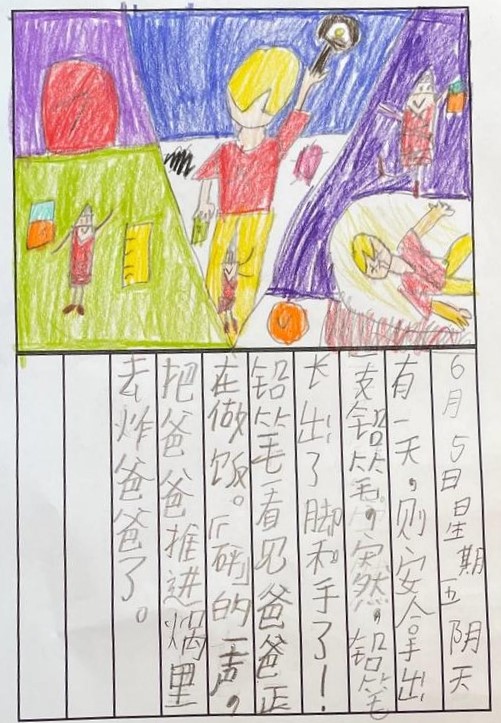 6月5日星期五阴天
有一天，则安拿出
一支铅笔。突然，铅笔
长出了脚和手了！
铅笔一看见爸爸正
在做饭。「砰」的一声，
把爸爸推进煱里
去炸爸爸了。